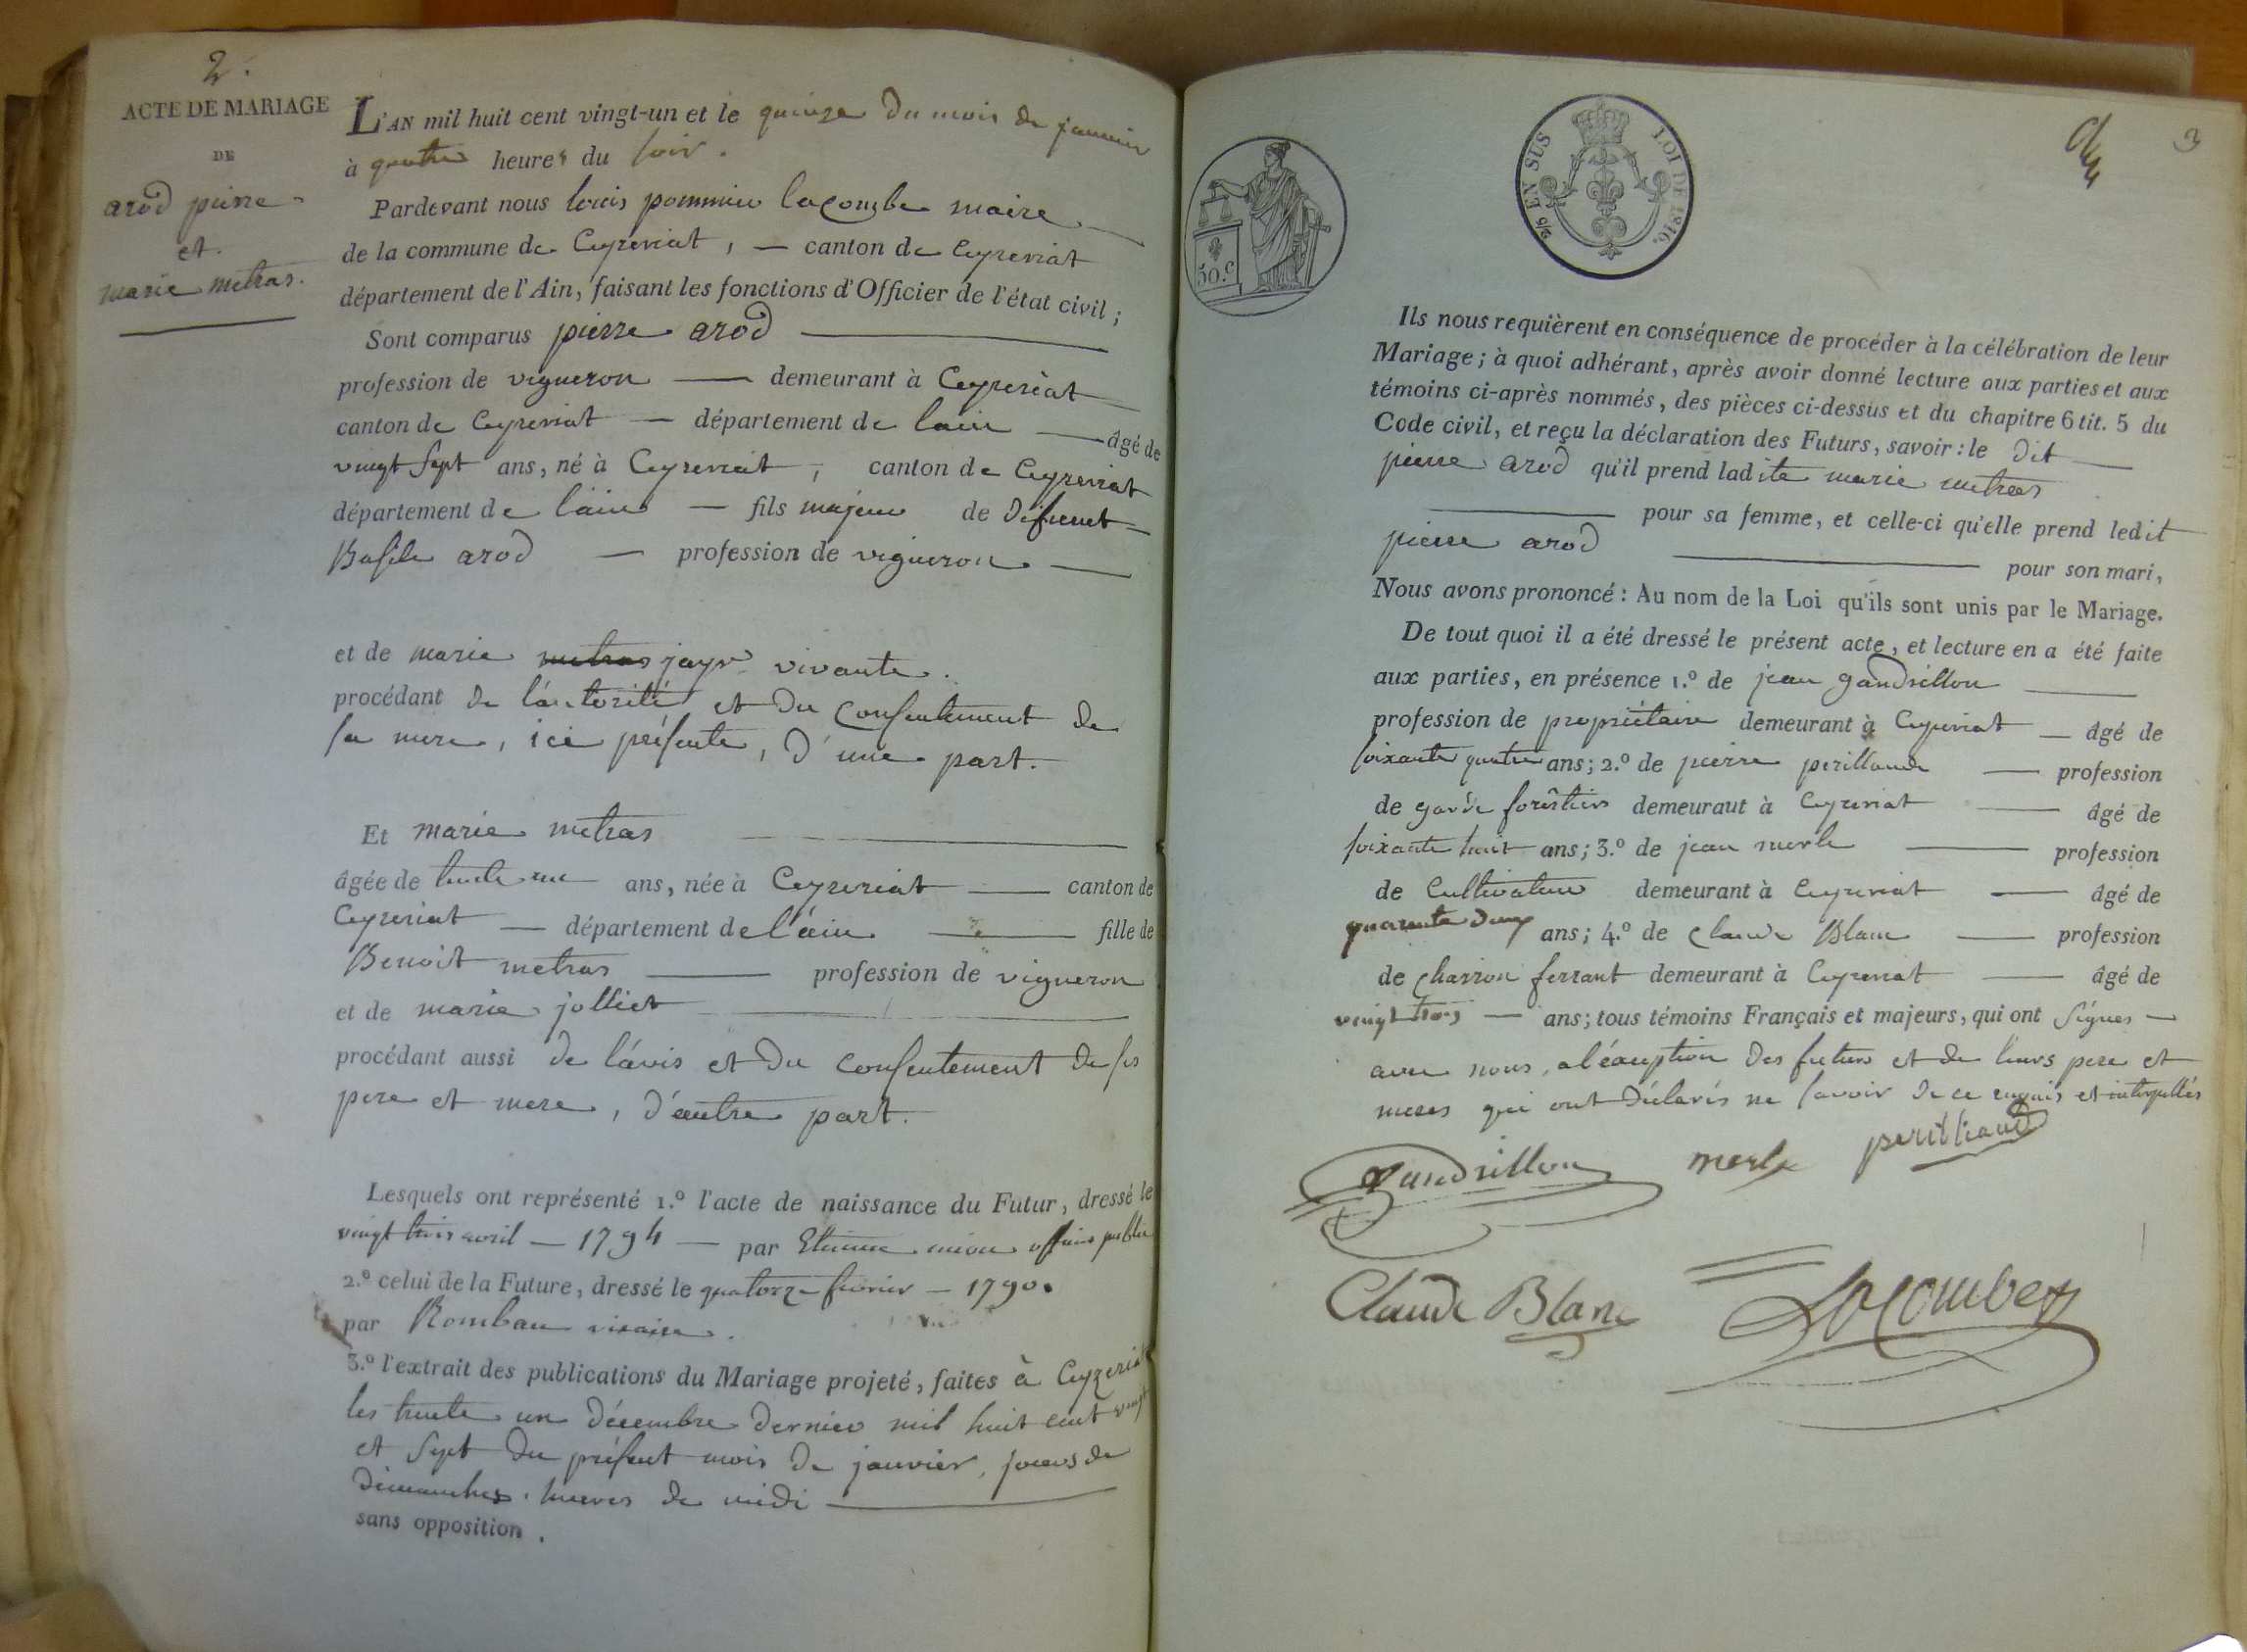 2.
ACTE DE MARIAGE
DE
arod pierre
et
marie metras.
L'AN mil huit cent vingt-un et le quinze du mois de janvier
à quatre heures du soir.
Pardevant nous louis pommier lacombe maire
de la commune de Ceyzeriat, — canton de Ceyzeriat
département de l'Ain, faisant les fonctions d'Officier de l'état civil;
Sont comparus pierre arod
profession de vigneron — demeurant à Ceyzeriat
canton de Ceyzeriat — département de lain — âgé de
vingt sept ans, né à Ceyzeriat, canton de Ceyzeriat
département de lain — fils majeur de defunt
Basile arod — profession de vigneron —
et de marie metras jayr vivante.
procédant de lautorité et du consentement de
sa mere, ici présente, d'une part.
Et marie metras
âgée de trente un ans, née à Ceyzeriat — canton de
Ceyzeriat — département de l'ain — fille de
Benoit metras — profession de vigneron
et de marie jolliet
procédant aussi de lavis et du consentement de ses
pere et mere, d'autre part.
Lesquels ont représenté 1.º l'acte de naissance du Futur, dressé le
vingt trois avril — 1794 — par Etienne officier public
2.º celui de la Future, dressé le quatorze fevrier — 1790.
par Rombau vicaire.
3.º l'extrait des publications du Mariage projeté, faites à Ceyzeriat
les trente un décembre dernier mil huit cent vingt
et sept du présent mois de janvier, jours de
dimanches. heures de midi
sans opposition.
3
2/5 EN SUS LOI DE 1816.
50.c
Ils nous requièrent en conséquence de procéder à la célébration de leur
Mariage; à quoi adhérant, après avoir donné lecture aux parties et aux
témoins ci-après nommés, des pièces ci-dessus et du chapitre 6 tit. 5 du
Code civil, et reçu la déclaration des Futurs, savoir: le dit
pierre arod qu'il prend ladite marie metras
pour sa femme, et celle-ci qu'elle prend ledit
pierre arod
pour son mari,
Nous avons prononcé: Au nom de la Loi qu'ils sont unis par le Mariage.
De tout quoi il a été dressé le présent acte, et lecture en a été faite
aux parties, en présence 1.º de jean gandrillon
profession de propriétaire demeurant à Ceyzeriat — âgé de
soixante quatre ans; 2.º de pierre perillaud — profession
de garde forêstier demeuraut à Ceyzeriat — âgé de
soixante huit ans; 3.º de jean merle — profession
de Cultivateur demeurant à Ceyzeriat — âgé de
quarante deux ans; 4.º de claude Blanc — profession
de charron ferrant demeurant à Ceyzeriat — âgé de
vingt trois — ans; tous témoins Français et majeurs, qui ont signés —
avec nous, a léxception des futurs et de leurs pere et
meres qui ont déclarés ne savoir de ce requis et interpellés
Gandrillon merle perilliaud
Claude Blanc Lacombe